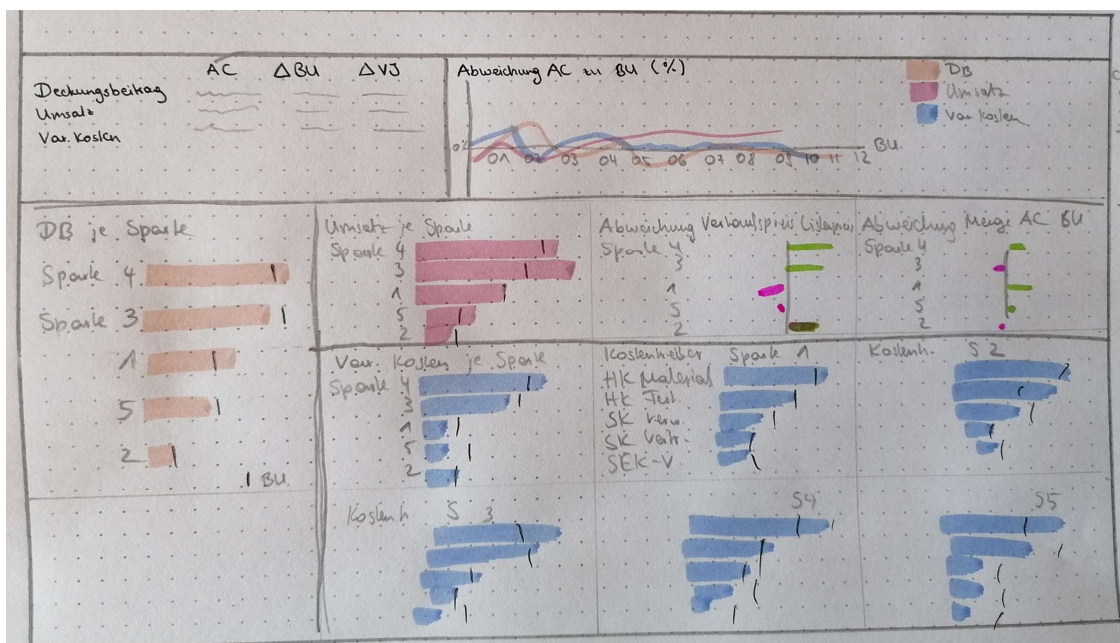 AC ΔBU ΔVJ
Deckungsbeitrag
Umsatz
Var. Kosten
Abweichung AC zu BU (%)
DB
Umsatz
Var Kosten
0%
01 02 03 04 05 06 07 08 09 10 11 12
BU
DB je Sparte
Sparte 4
Sparte 3
1
5
2
| BU
Umsatz je Sparte
Sparte 4
3
1
5
2
Abweichung Verkaufspreis
Sparte 4
3
1
5
2
Abweichung Menge AC BU
Sparte 4
3
1
5
2
Var. Kosten je Sparte
Sparte 4
3
1
5
2
Kostentreiber Sparte 1
HK Material
HK Fert.
SK Verw.
SK Vertr.
SEK-V
Kostent. S 2
Kostent. S 3
S4
S5